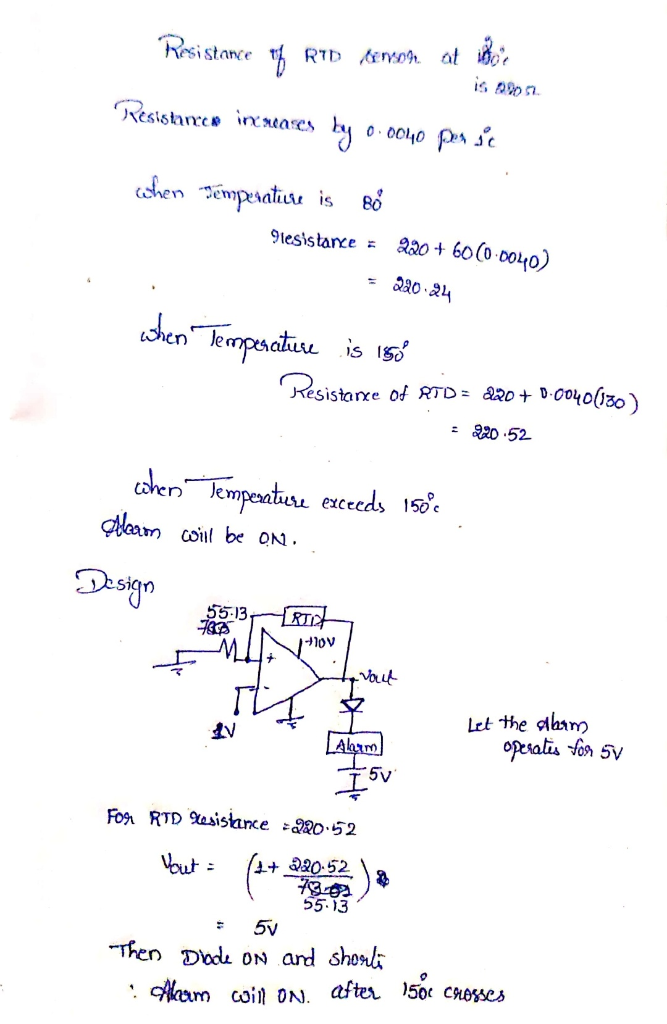 Resistance of RTD sensor at
is 220Ω
Resistance increases by 0.0040 per 1°c
when Temperature is 80°
resistance = 220 + 60(0.0040)
= 220.24
when Temperature is 150°
Resistance of RTD = 220 + 0.0040(130)
= 220.52
when Temperature exceeds 150°c
Alarm will be ON.
Design
55.13
RTD
+10V
+
-
Vout
1V
Alarm
5V
Let the Alarm
operates for 5V
For RTD resistance = 220.52
Vout = (1 + 220.52
55.13 )
= 5V
Then Diode ON and shorts
∴ Alarm will ON. after 150°c crosses